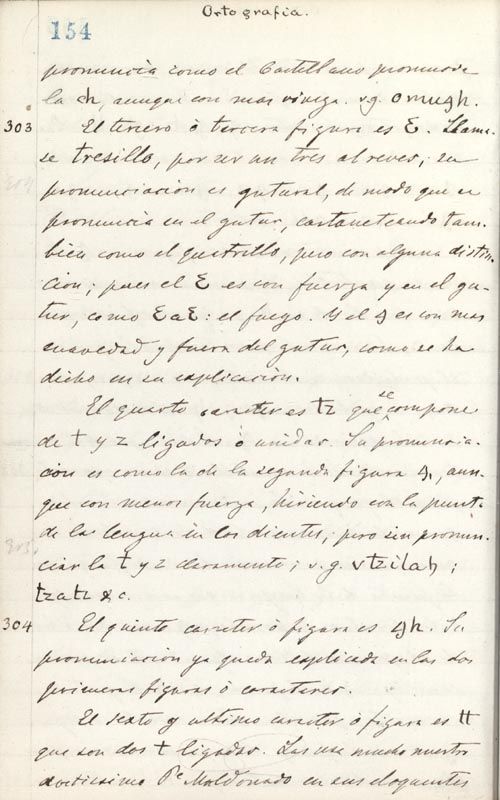 Ortografia.
154
pronuncia como el Castellano pronuncia
la ch, aunque con mas viveza. vg. omuꜭh.
303 El tercero ò tercera figura es Ɛ. Llama-
se tresillo, por ser un tres al reves; su
pronunciacion es gutural, de modo que se
pronuncia en el gutur, castaneteando tam-
bien como el quatrillo, pero con alguna distin-
cion; pues el Ɛ es con fuerza y en el gu-
tur, como ƐaƐ: el fuego. Y el ꜭ es con mas
suavedad y fuera del gutur, como se ha
dicho en su explicación.
El quarto caracter es tz que se compone
de t y z ligados ò unidas. Su pronuncia-
ción es como la de la segunda figura ꜭ, aun-
que con menos fuerza, hiriendo con la punta
de la lengua en los dientes; pero sin pronun-
ciar la t y z claramente; v.g. vtzilah;
tzatz &c.
304 El quinto caracter ò figura es ꜭh. Su
pronunciación ya queda explicada en las dos
primeras figuras ò caracteres.
El sexto y ultimo caracter ò figura es tt
que son dos t ligadas. Las usa mucho nuestro
doctissimo Pe Maldonado en sus eloquentes